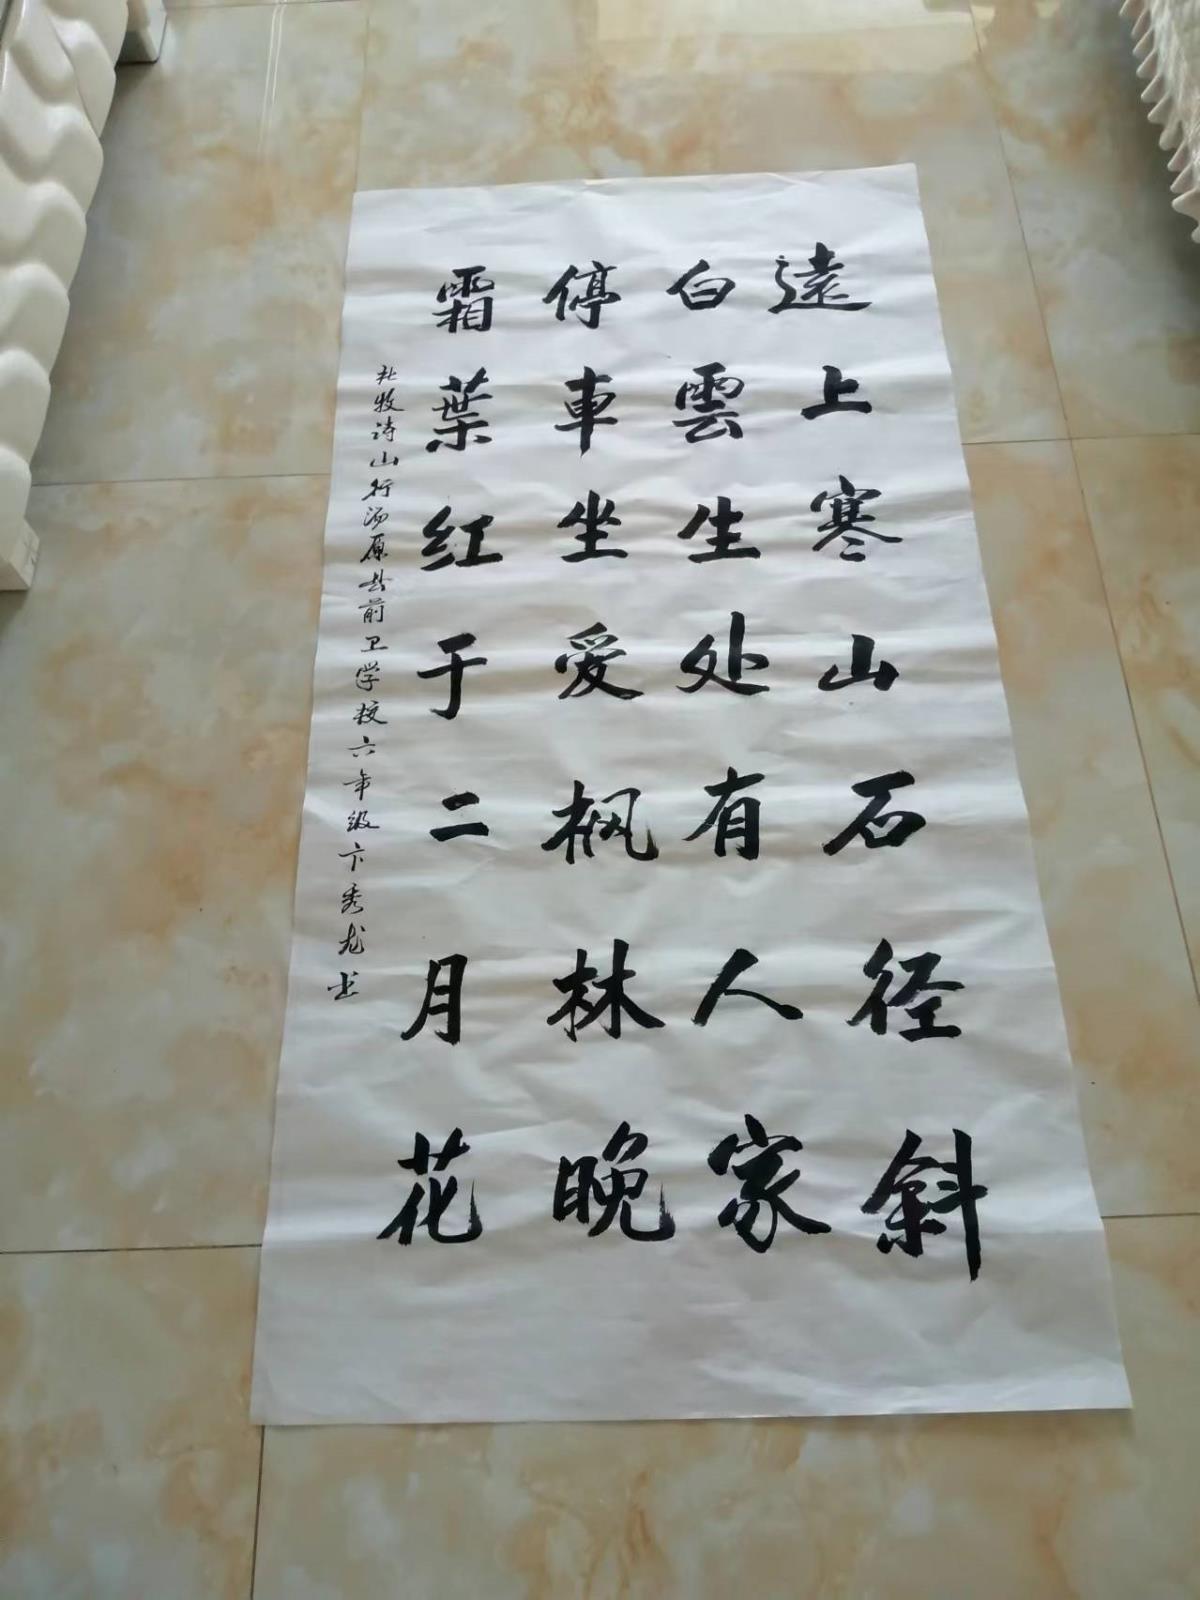 遠上寒山石径斜
白雲生处有人家
停車坐爱枫林晚
霜葉红于二月花
杜牧诗山行汤原县前卫学校六年级卞秀龙书